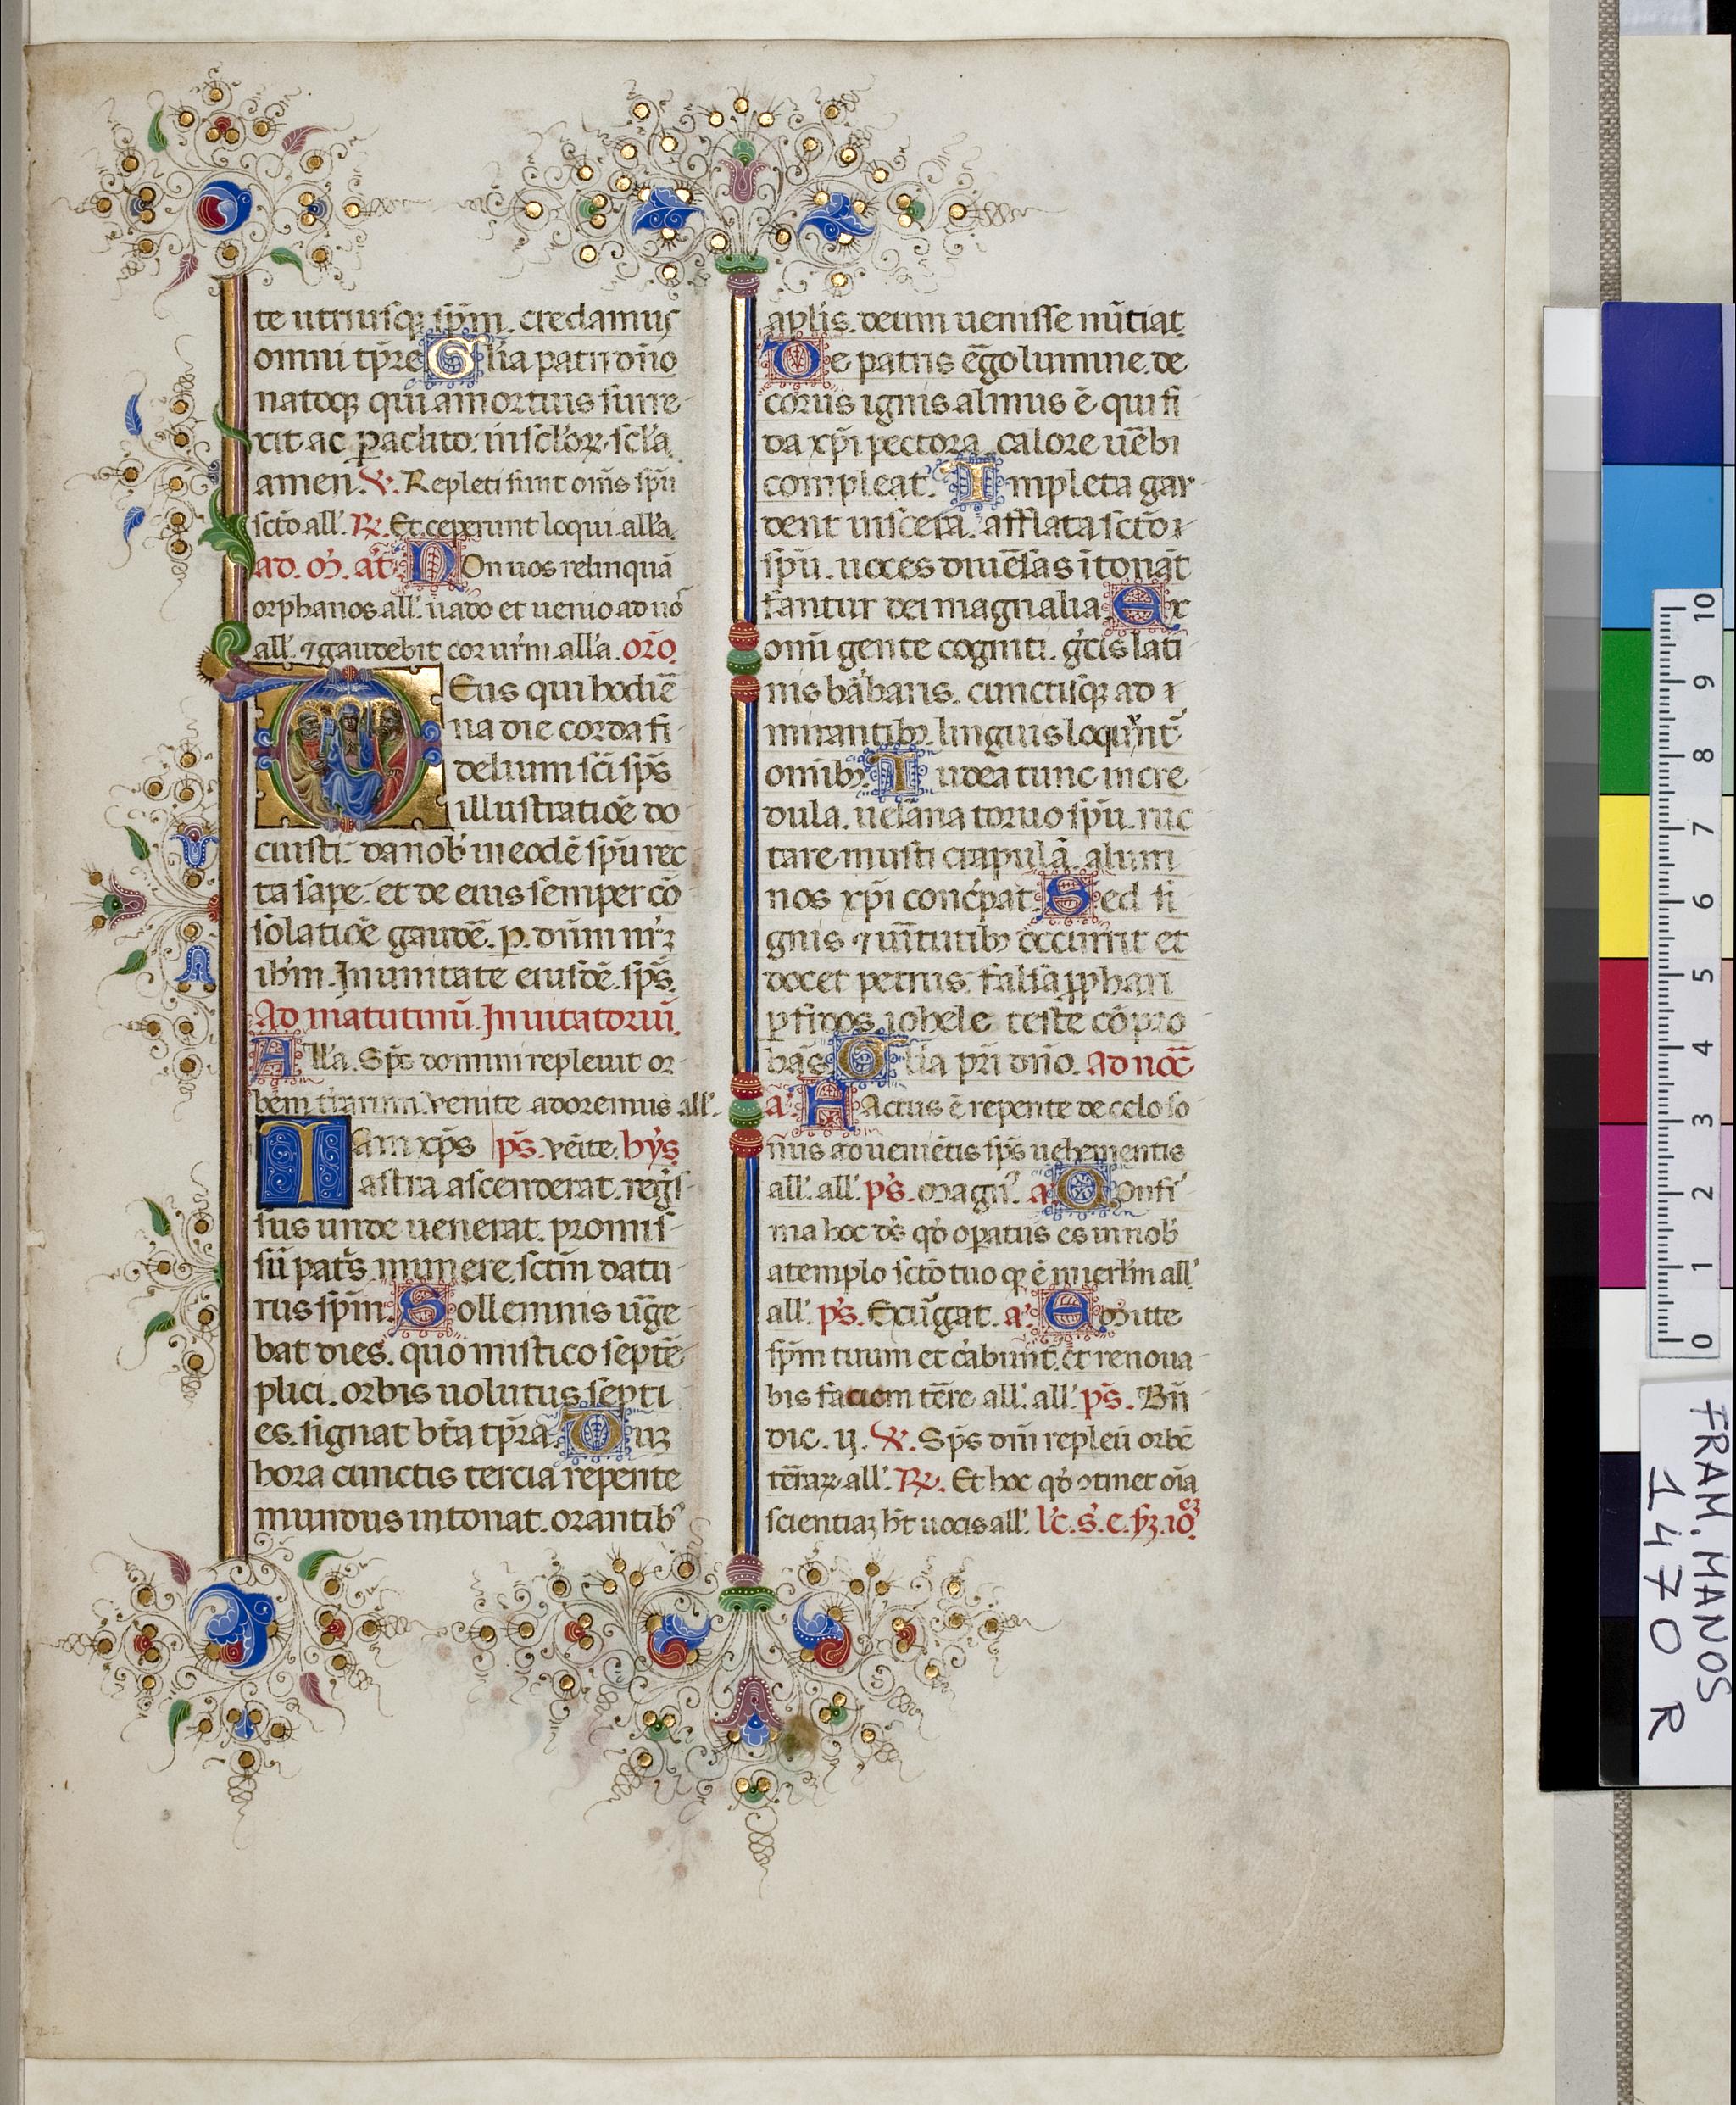 te utriusq; sp̄m. credamus
omni tp̄re Gl̄ia patri dn̄o
natoq; qui a mortuis surre
xit ac paclito. in sclōꝝ scl̄a
amen. ℣. Repleti sunt om̄s sp̄u
scō all'. ℟. Et ceperunt loqui. all'a.
ad. m̄. an̄t. Non uos relinquā
orphanos all'. uado et uenio ad uō
all'. ⁊ gaudebit cor ur̄m. all'a. orō
Deus qui hodiē
na die corda fi
delium sc̄i sp̄s
illustratiōe do
cuisti. da nob̄ in eodē sp̄u rec
ta sape. et de eius semper cō
solatiōe gaudē. p. dn̄m nr̄ꝫ
ih̄m. In unitate eiusdē. sp̄s.
Ad matutinū. Inuitatoriū.
All'a. Sp̄s domini repleuit or
bem tr̄arum. venite adoremus all'.
Iam xp̄s ps̄. vēite. hȳs
astra ascenderat. regs̄
sus unde uenerat. promis
sū pat̄s munere. sctm̄ datu
rus sp̄m. Sollemnis ur̄ge
bat dies. quo mistico septē
plici. orbis uolutus septi
es. signat bt̄a tp̄ra. Duꝫ
hora cunctis tercia repente
mundus intonat. orantib'
aplis. deum uenisse nūtiat
De patris ēgo lumine. de
corus ignis almus ē qui fi
da xp̄i pectora. calore uēbi
compleat. Impleta gau
dent uiscera. afflata sctō
sp̄u. uoces diuēsas ītonāt
fantur dei magnalia. Ex
omī gente cogniti. gr̄cis lati
nis bārbaris. cunctisq; ad
mirantibꝫ. linguis loqunt̄
omībꝫ. Iudea tunc incre
dula. uesana toruo sp̄u. ruc
tare musti crapulā. alum
nos xp̄i conc̄pat. Sed si
gnis ⁊ uīrtutibꝫ occurrit et
docet petrus. falsa ꝓphari
ꝑfidos iohele teste cōpro
bās. Gl̄ia pr̄i dn̄o. Ad noc̄
a'. Factus ē repente de celo so
nus adueniētis sp̄s uehementis
all'. all'. ps̄. Magn'. a'. Confi
ma hoc ds̄ qd̄ oꝑatus es in nob̄
a templo sctō tuo qd̄ ē in ierl̄m all'
all'. ps̄. Exūrgat. a'. Emitte
sp̄m tuum et c̄abunt̄ et renoua
bis faciem tēre all'. all'. ps̄. Bn̄
dic. ij. ℣. Sp̄s dn̄i repleū orbē
tēraꝝ all'. ℟. Et hoc qd̄ ↄtinet oīa
scientiaꝫ ht̄ uocis all'. lc̄. s'. e. sꝫ. io'.
10
9
8
7
6
5
4
3
2
1
0
FRAM. MANOS
1470 R